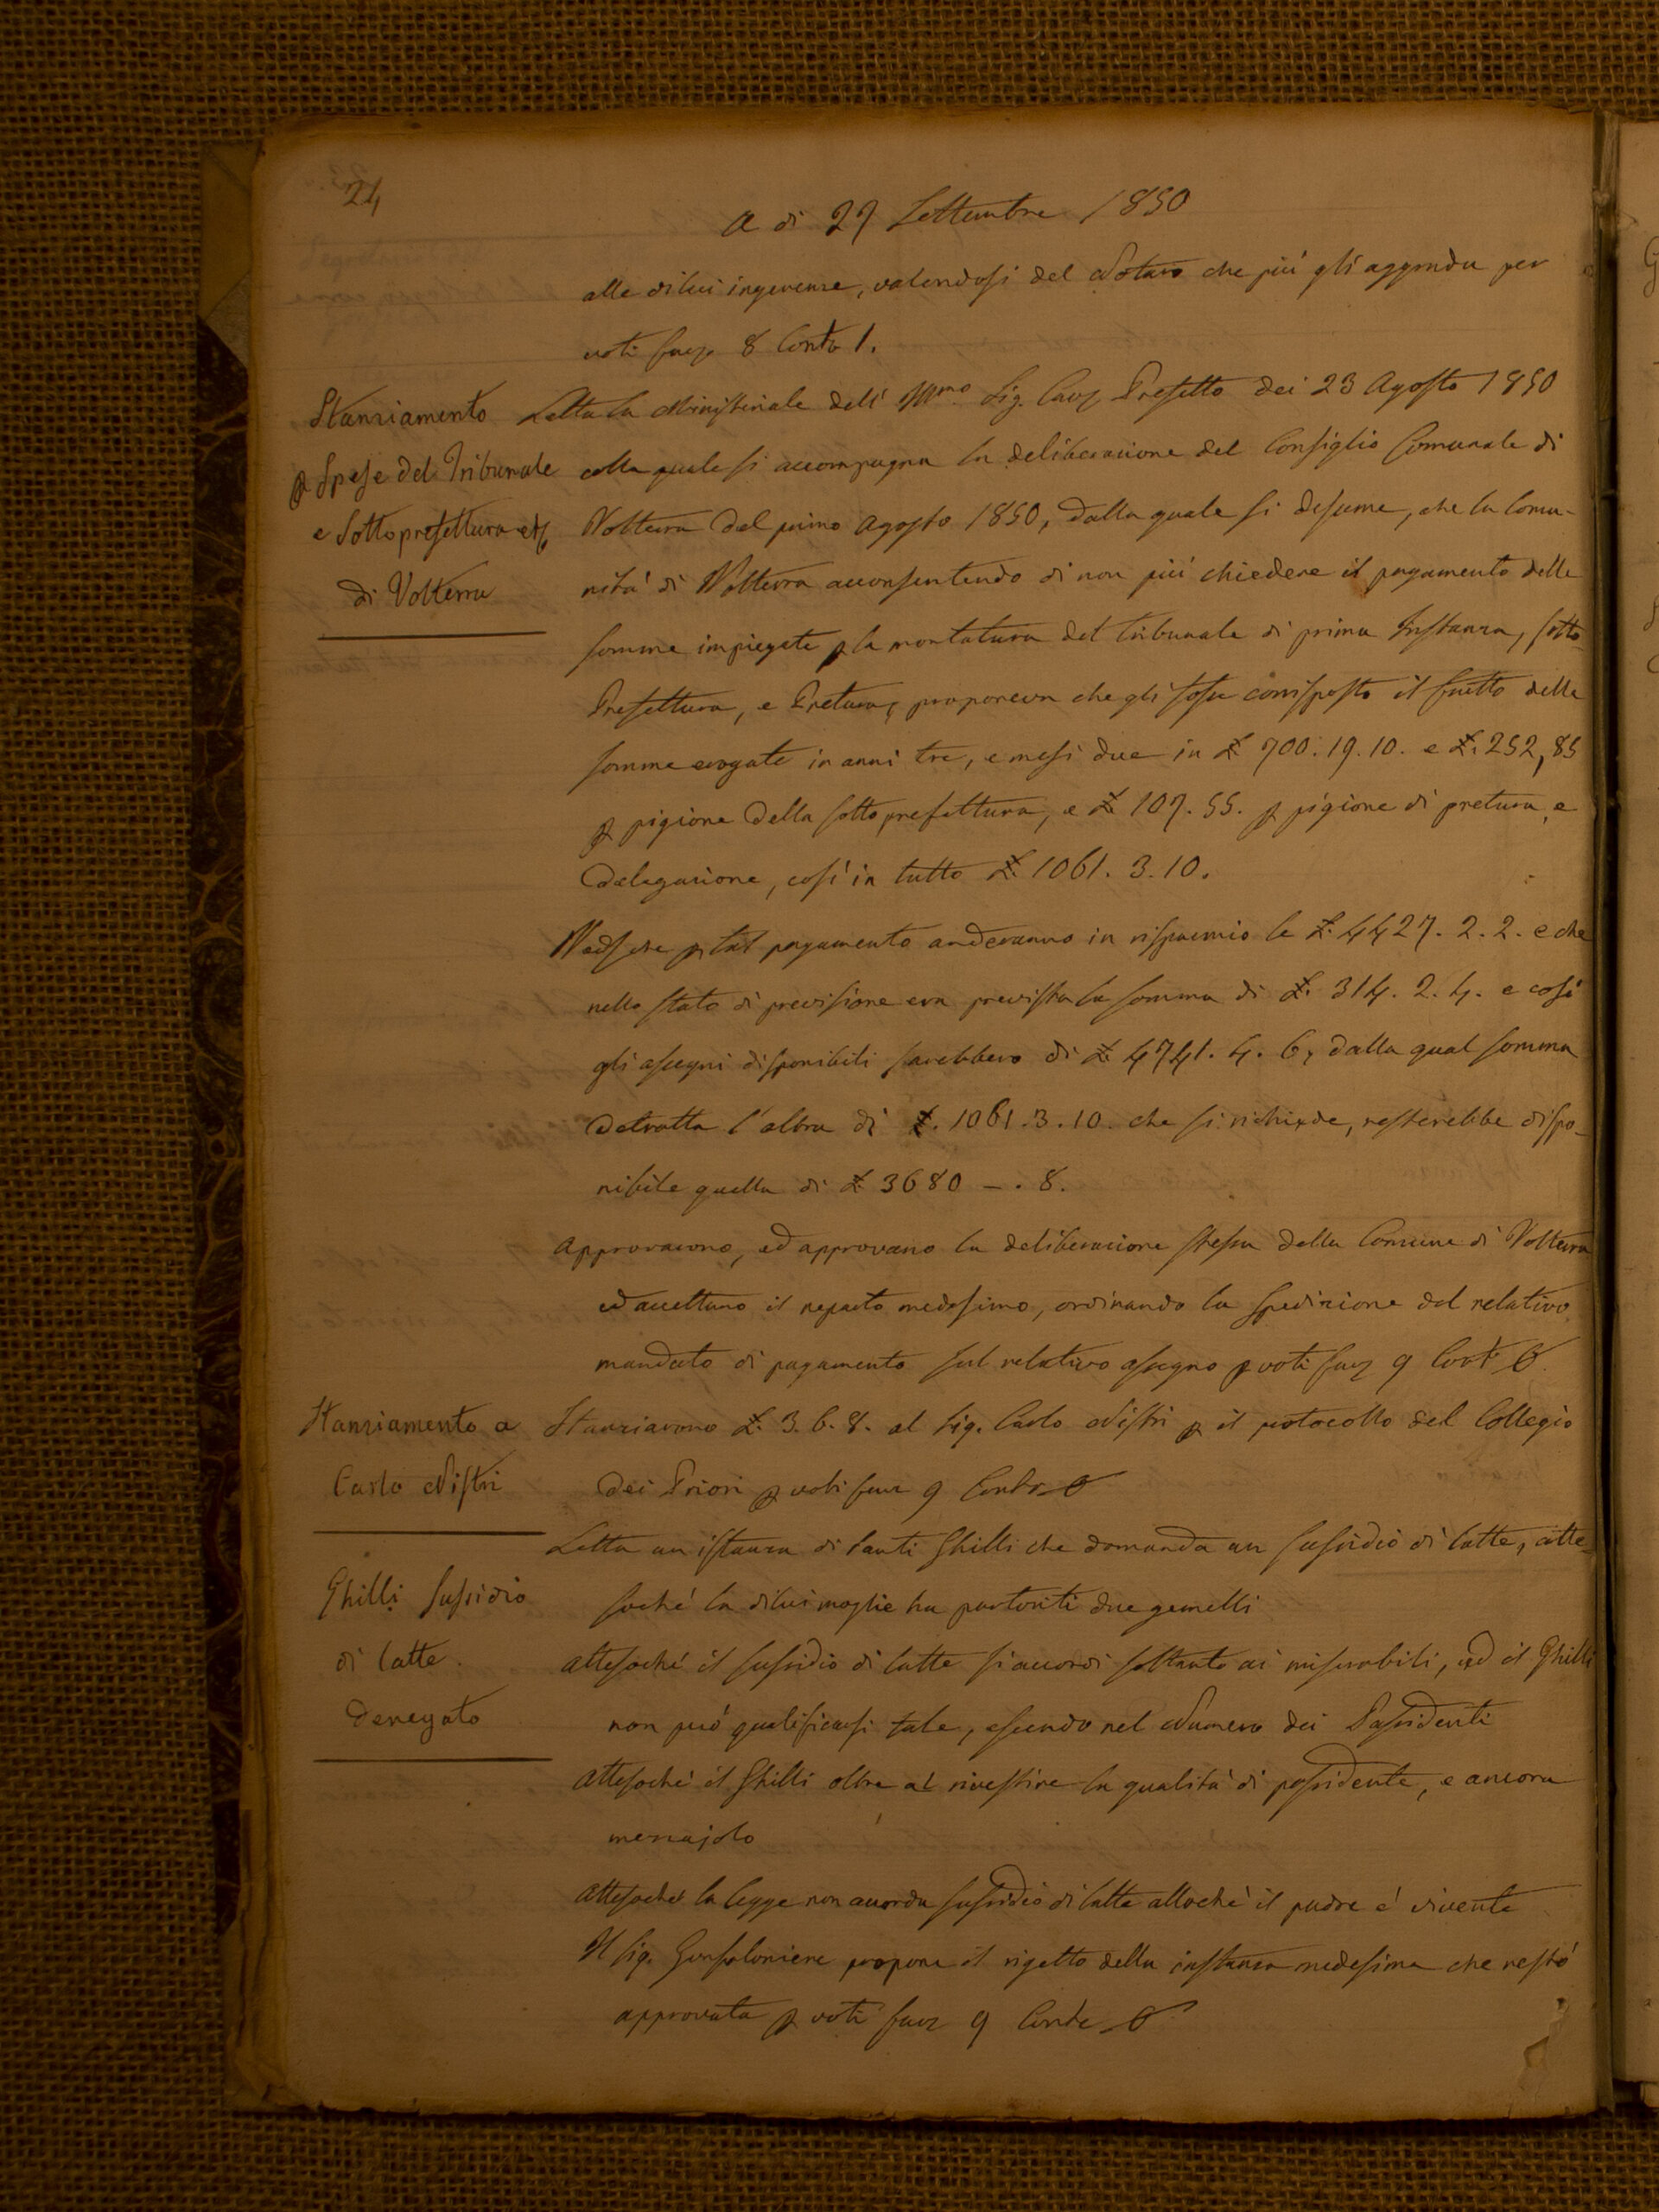 24
A di 27 Settembre 1850
alle di lui ingerenze, valendosi del Notaro che più gli aggrada per
voti favz 8 Contr 1.
Stanziamento
p Spese del Tribunale
e Sottoprefettura etc
di Volterra
Letta la Ministeriale dell' Illmo Sig. Cavz Prefetto dei 23 Agosto 1850
colla quale si accompagna la deliberazione del Consiglio Comunale di
Volterra del primo Agosto 1850, dalla quale si desume, che la Comu-
nità di Volterra acconsentendo di non più chiedere il pagamento delle
somme impiegate p la montatura del tribunale di prima Instanza, sotto
Prefettura, e Pretura, proponeva che gli fosse corrisposto il frutto delle
somme erogate in anni tre, e mesi due in £ 700. 19. 10. e £. 252, 85
p pigione della sottoprefettura, e £ 107. 55. p pigione di pretura, e
Delegazione, così in tutto £. 1061. 3. 10.
che p tal pagamento anderanno in risparmio le £. 4427. 2. 2. e che
nello stato di previsione era prevista la somma di £. 314. 2. 4. e così
gli assegni disponibili sarebbero di £ 4741. 4. 6, dalla qual somma
detratta l'altra di £. 1061. 3. 10. che si richiede, resterebbe dispo-
nibile quella di £ 3680 – . 8.
Approvarono, ed approvano la deliberazione stessa della Comune di Volterra
ed accettano il reparto medesimo, ordinando la spedizione del relativo
mandato di pagamento sul relativo assegno p voti favz 9 Contr 0.
Stanziamento a
Carlo Nistri
Stanziarono £. 3. 6. 8. al Sig. Carlo Nistri p il protocollo del Collegio
Dei Priori p voti favz 9 Contr 0
Ghilli sussidio
di latte.
denegato
Letta un istanza di Santi Ghilli che domanda un sussidio di latte, atte-
soché la di lui moglie ha partoriti due gemelli
Attesoché il sussidio di latte si accordi soltanto ai miserabili, ed il Ghilli
non può qualificarsi tale, essendo nel Numero dei Possidenti
Attesoché il Ghilli oltre al rivestire la qualità di possidente, e ancora
mezzajolo
Attesoché la legge non accorda sussidio di latte alloché il padre é vivente
Il Sig. Gonfaloniere propone il rigetto della instanza medesima che restò
approvata p voti favz 9 Contr 0